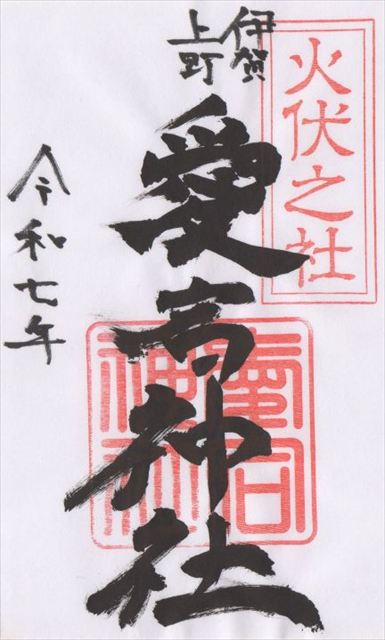 火伏之社
伊賀
上野
愛宕神社
愛宕
神社
令和七年